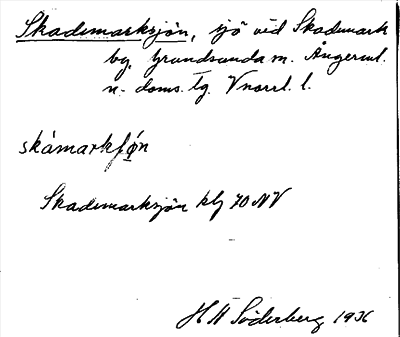 Skademarksjön, sjö vid Skademark
by, Grundsunda sn. Ångerml.
n. doms. tg. Vnorrl. l.
skámarkʃǿn
Skademarksjön klg 70 NV
H H Söderberg 1936